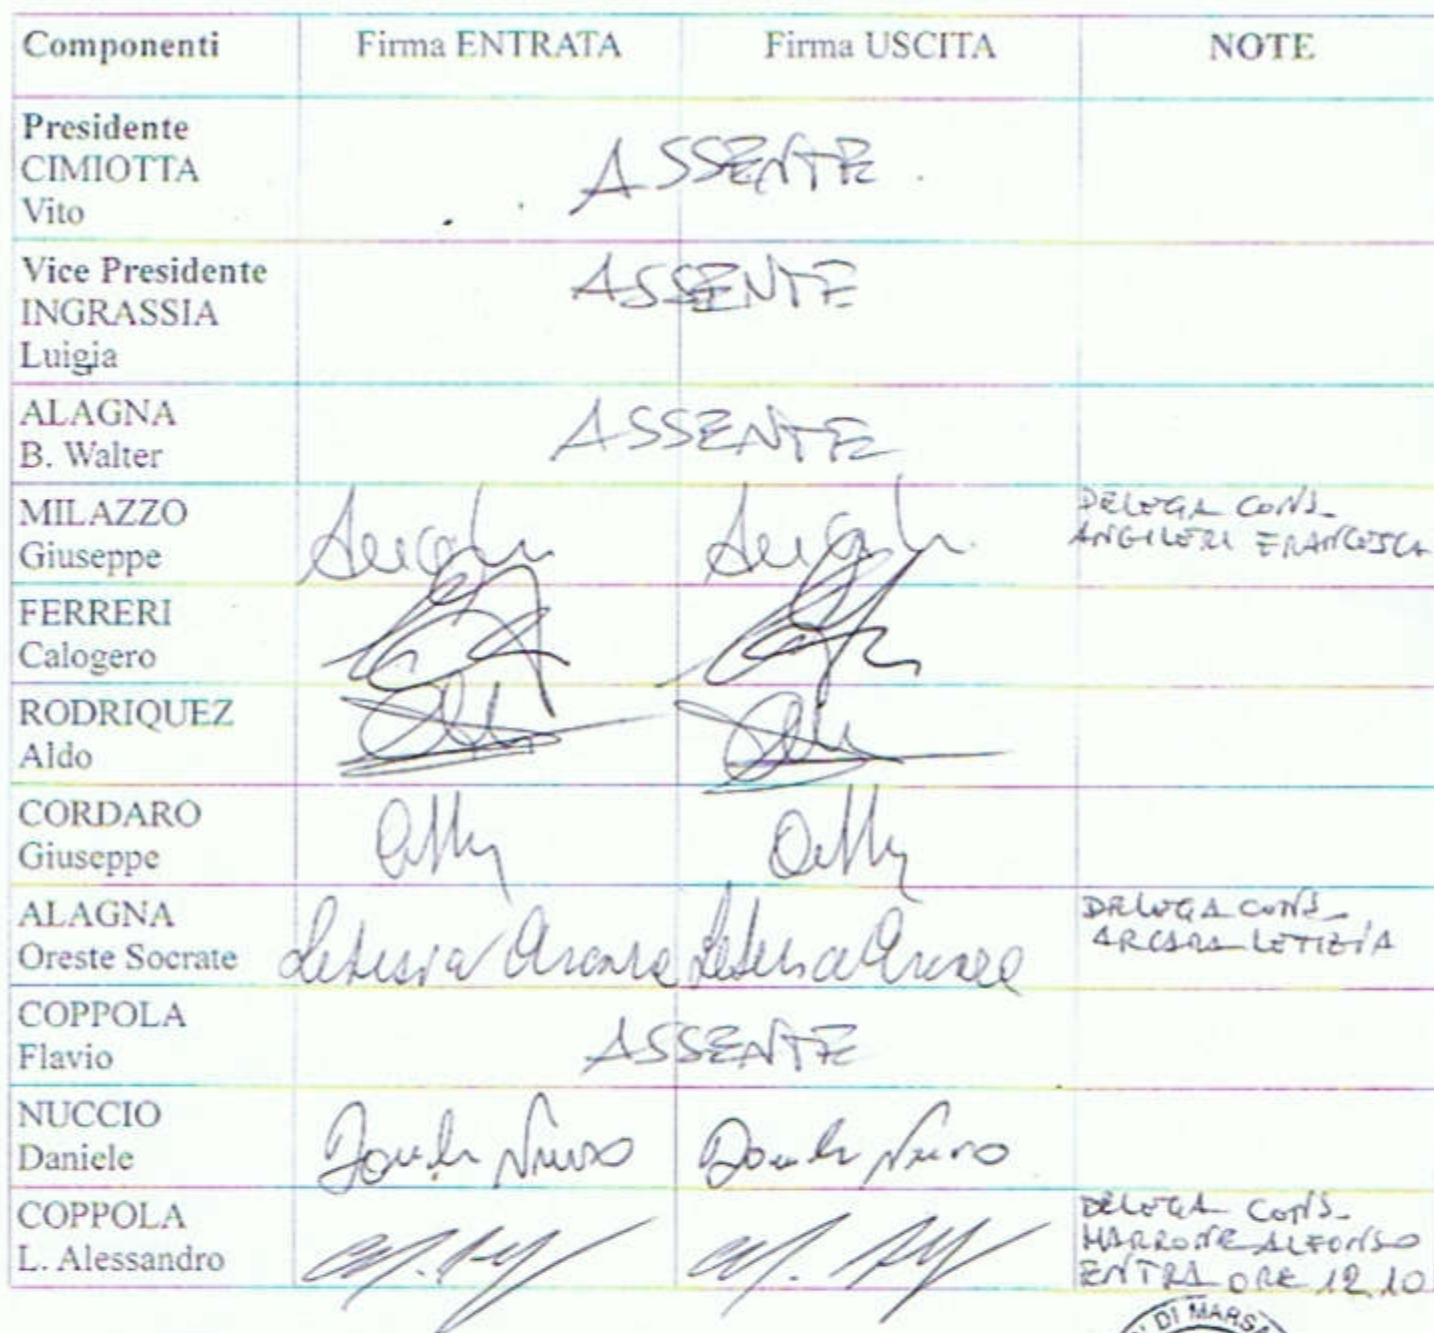 Componenti Firma ENTRATA Firma USCITA NOTE
Presidente
CIMIOTTA
Vito
ASSENTE
Vice Presidente
INGRASSIA
Luigia
ASSENTE
ALAGNA
B. Walter
ASSENTE
MILAZZO
Giuseppe
DELEGA CONS.
ANGILERI FRANCESCA
FERRERI
Calogero
RODRIQUEZ
Aldo
CORDARO
Giuseppe
ALAGNA
Oreste Socrate
Letizia Arcara Letizia Arcara
DELEGA CONS.
ARCARA LETIZIA
COPPOLA
Flavio
ASSENTE
NUCCIO
Daniele
Daniele Nuccio Daniele Nuccio
COPPOLA
L. Alessandro
DELEGA CONS.
MARRONE ALFONSO
ENTRA ORE 12.10
DI MARSA